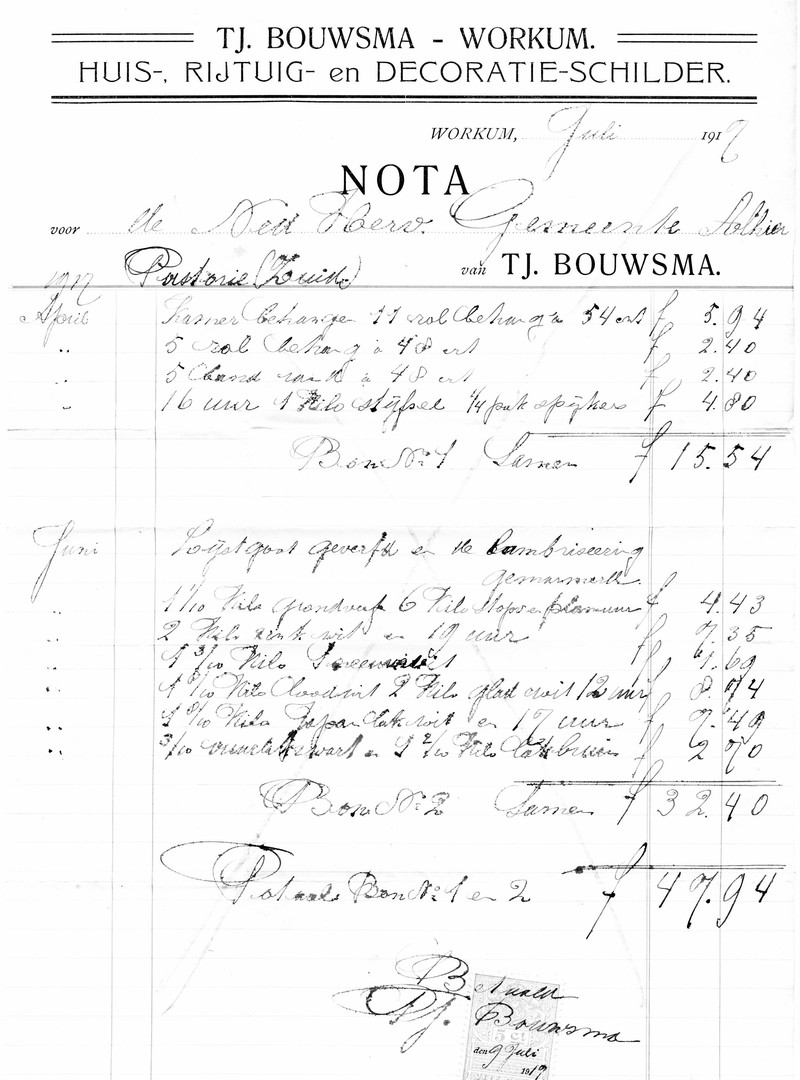 TJ. BOUWSMA - WORKUM.
HUIS-, RIJTUIG- en DECORATIE-SCHILDER.
WORKUM, Juli 1917
NOTA
voor de Ned Herv. Gemeente Alhier
1917 Pastorie (Zuid) van TJ. BOUWSMA.
April Kamer behangen 11 rol behang à 54 cnt f 5.94
„ 5 rol behang à 48 cnt f 2.40
„ 5 band rand à 48 cnt f 2.40
„ 16 uur 1 Kilo stijfsel 1/4 pak spijkers f 4.80
Bon No 1 Samen f 15.54
Juni Lijstgoot geverfd en de lambriseering
gemarmerd.
„ 1 1/10 Kilo grondverf 6 Kilo stopverf f 4.43
„ 2 Kilo zink wit en 19 uur f 7.35
„ 1 3/10 Kilo f 1.69
„ Kilo loodwit 2 Kilo glad wit 12 uur f 8.74
„ 1 8/10 Kilo Japan lak wit en 17 uur f 7.49
„ 3/10 zwart en 1 2/10 Kilo lak bruin f 2 70
Bon No 2 Samen f 32.40
Totaal Bon No 1 en 2 f 47.94
Betaald
Tj. Bouwsma
den 9 Juli
1917